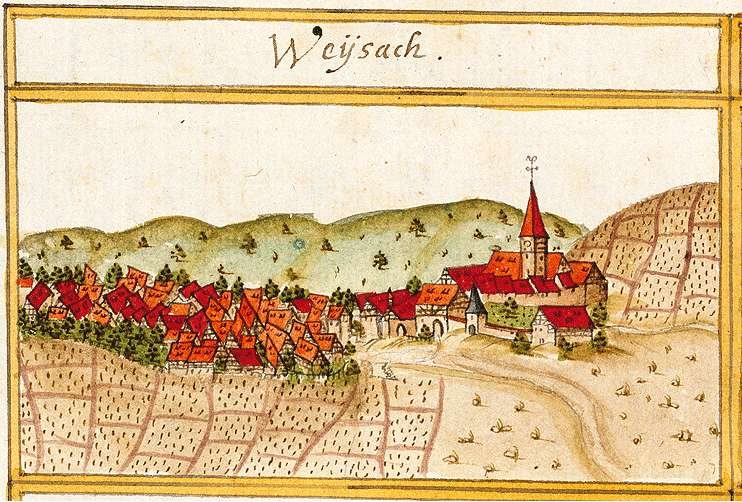 Weÿsach.